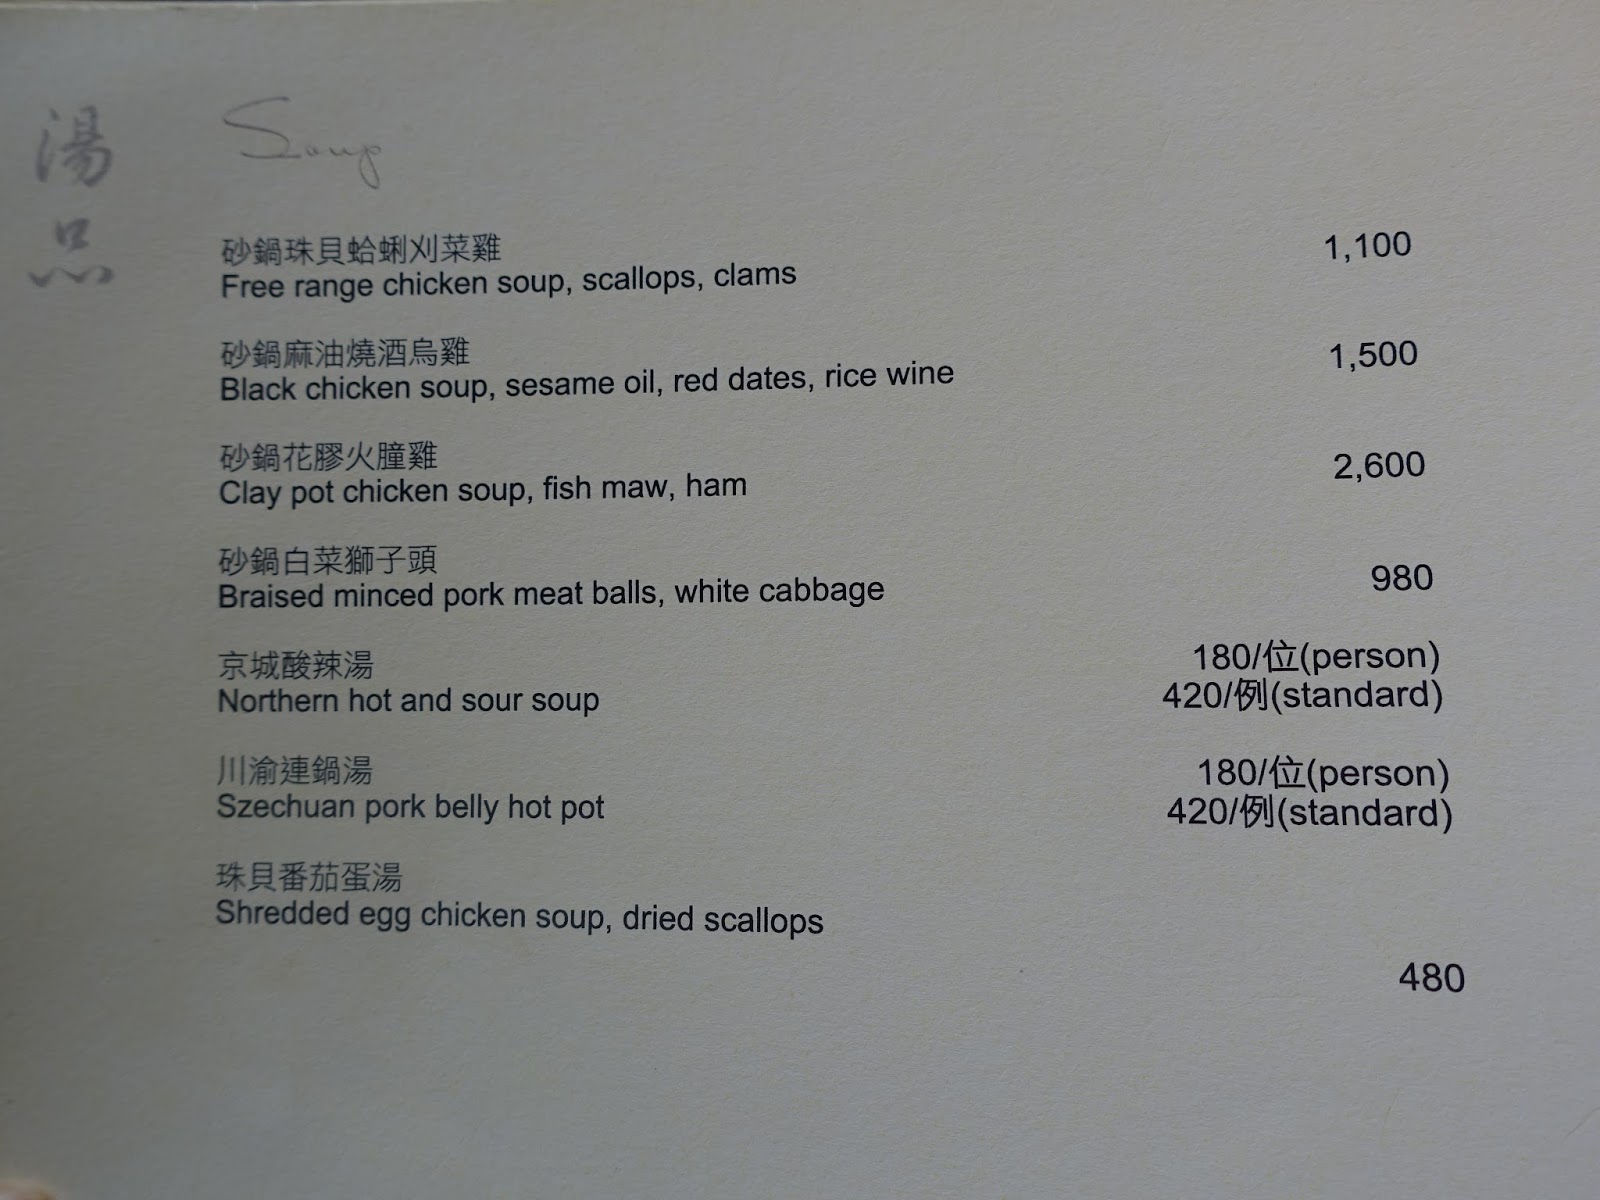 湯品
Soup
砂鍋珠貝蛤蜊刈菜雞 1,100
Free range chicken soup, scallops, clams
砂鍋麻油燒酒烏雞 1,500
Black chicken soup, sesame oil, red dates, rice wine
砂鍋花膠火朣雞 2,600
Clay pot chicken soup, fish maw, ham
砂鍋白菜獅子頭 980
Braised minced pork meat balls, white cabbage
京城酸辣湯 180/位(person)
Northern hot and sour soup 420/例(standard)
川渝連鍋湯 180/位(person)
Szechuan pork belly hot pot 420/例(standard)
珠貝番茄蛋湯
Shredded egg chicken soup, dried scallops
480